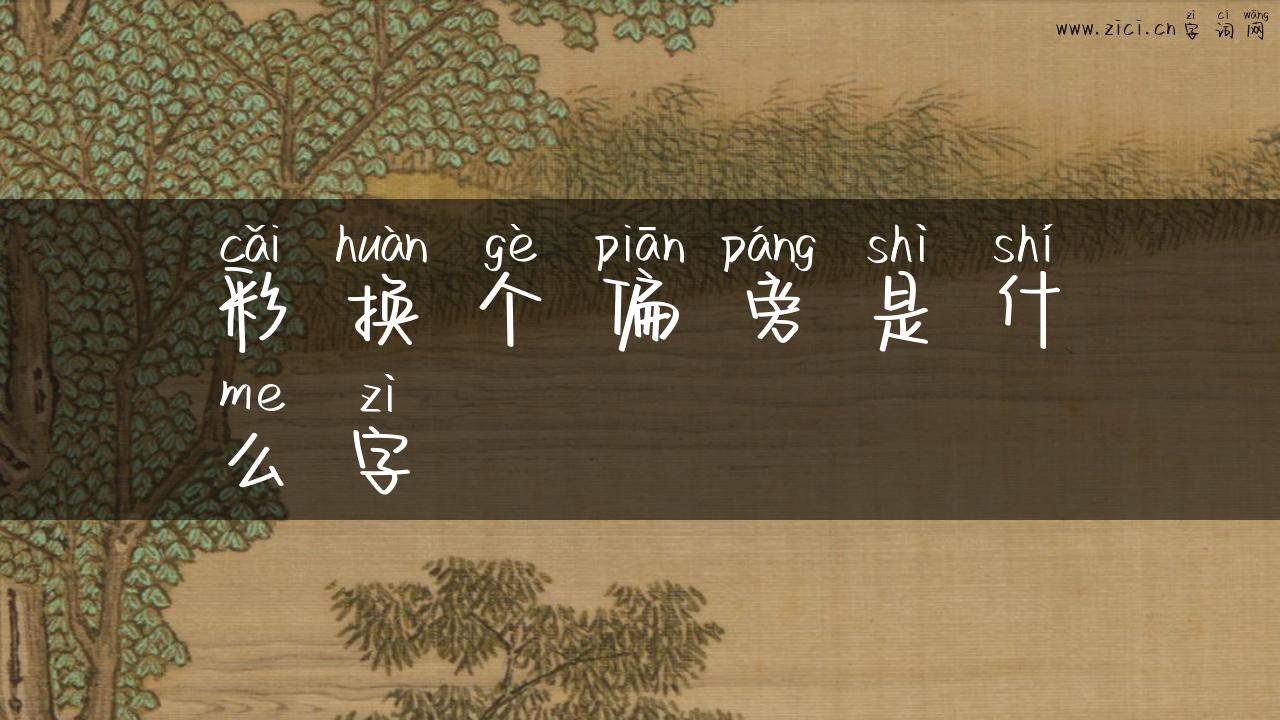 zì cí wǎng
www.zici.cn 字词网
cǎi huàn gè piān páng shì shí
彩换个偏旁是什
me zì
么字